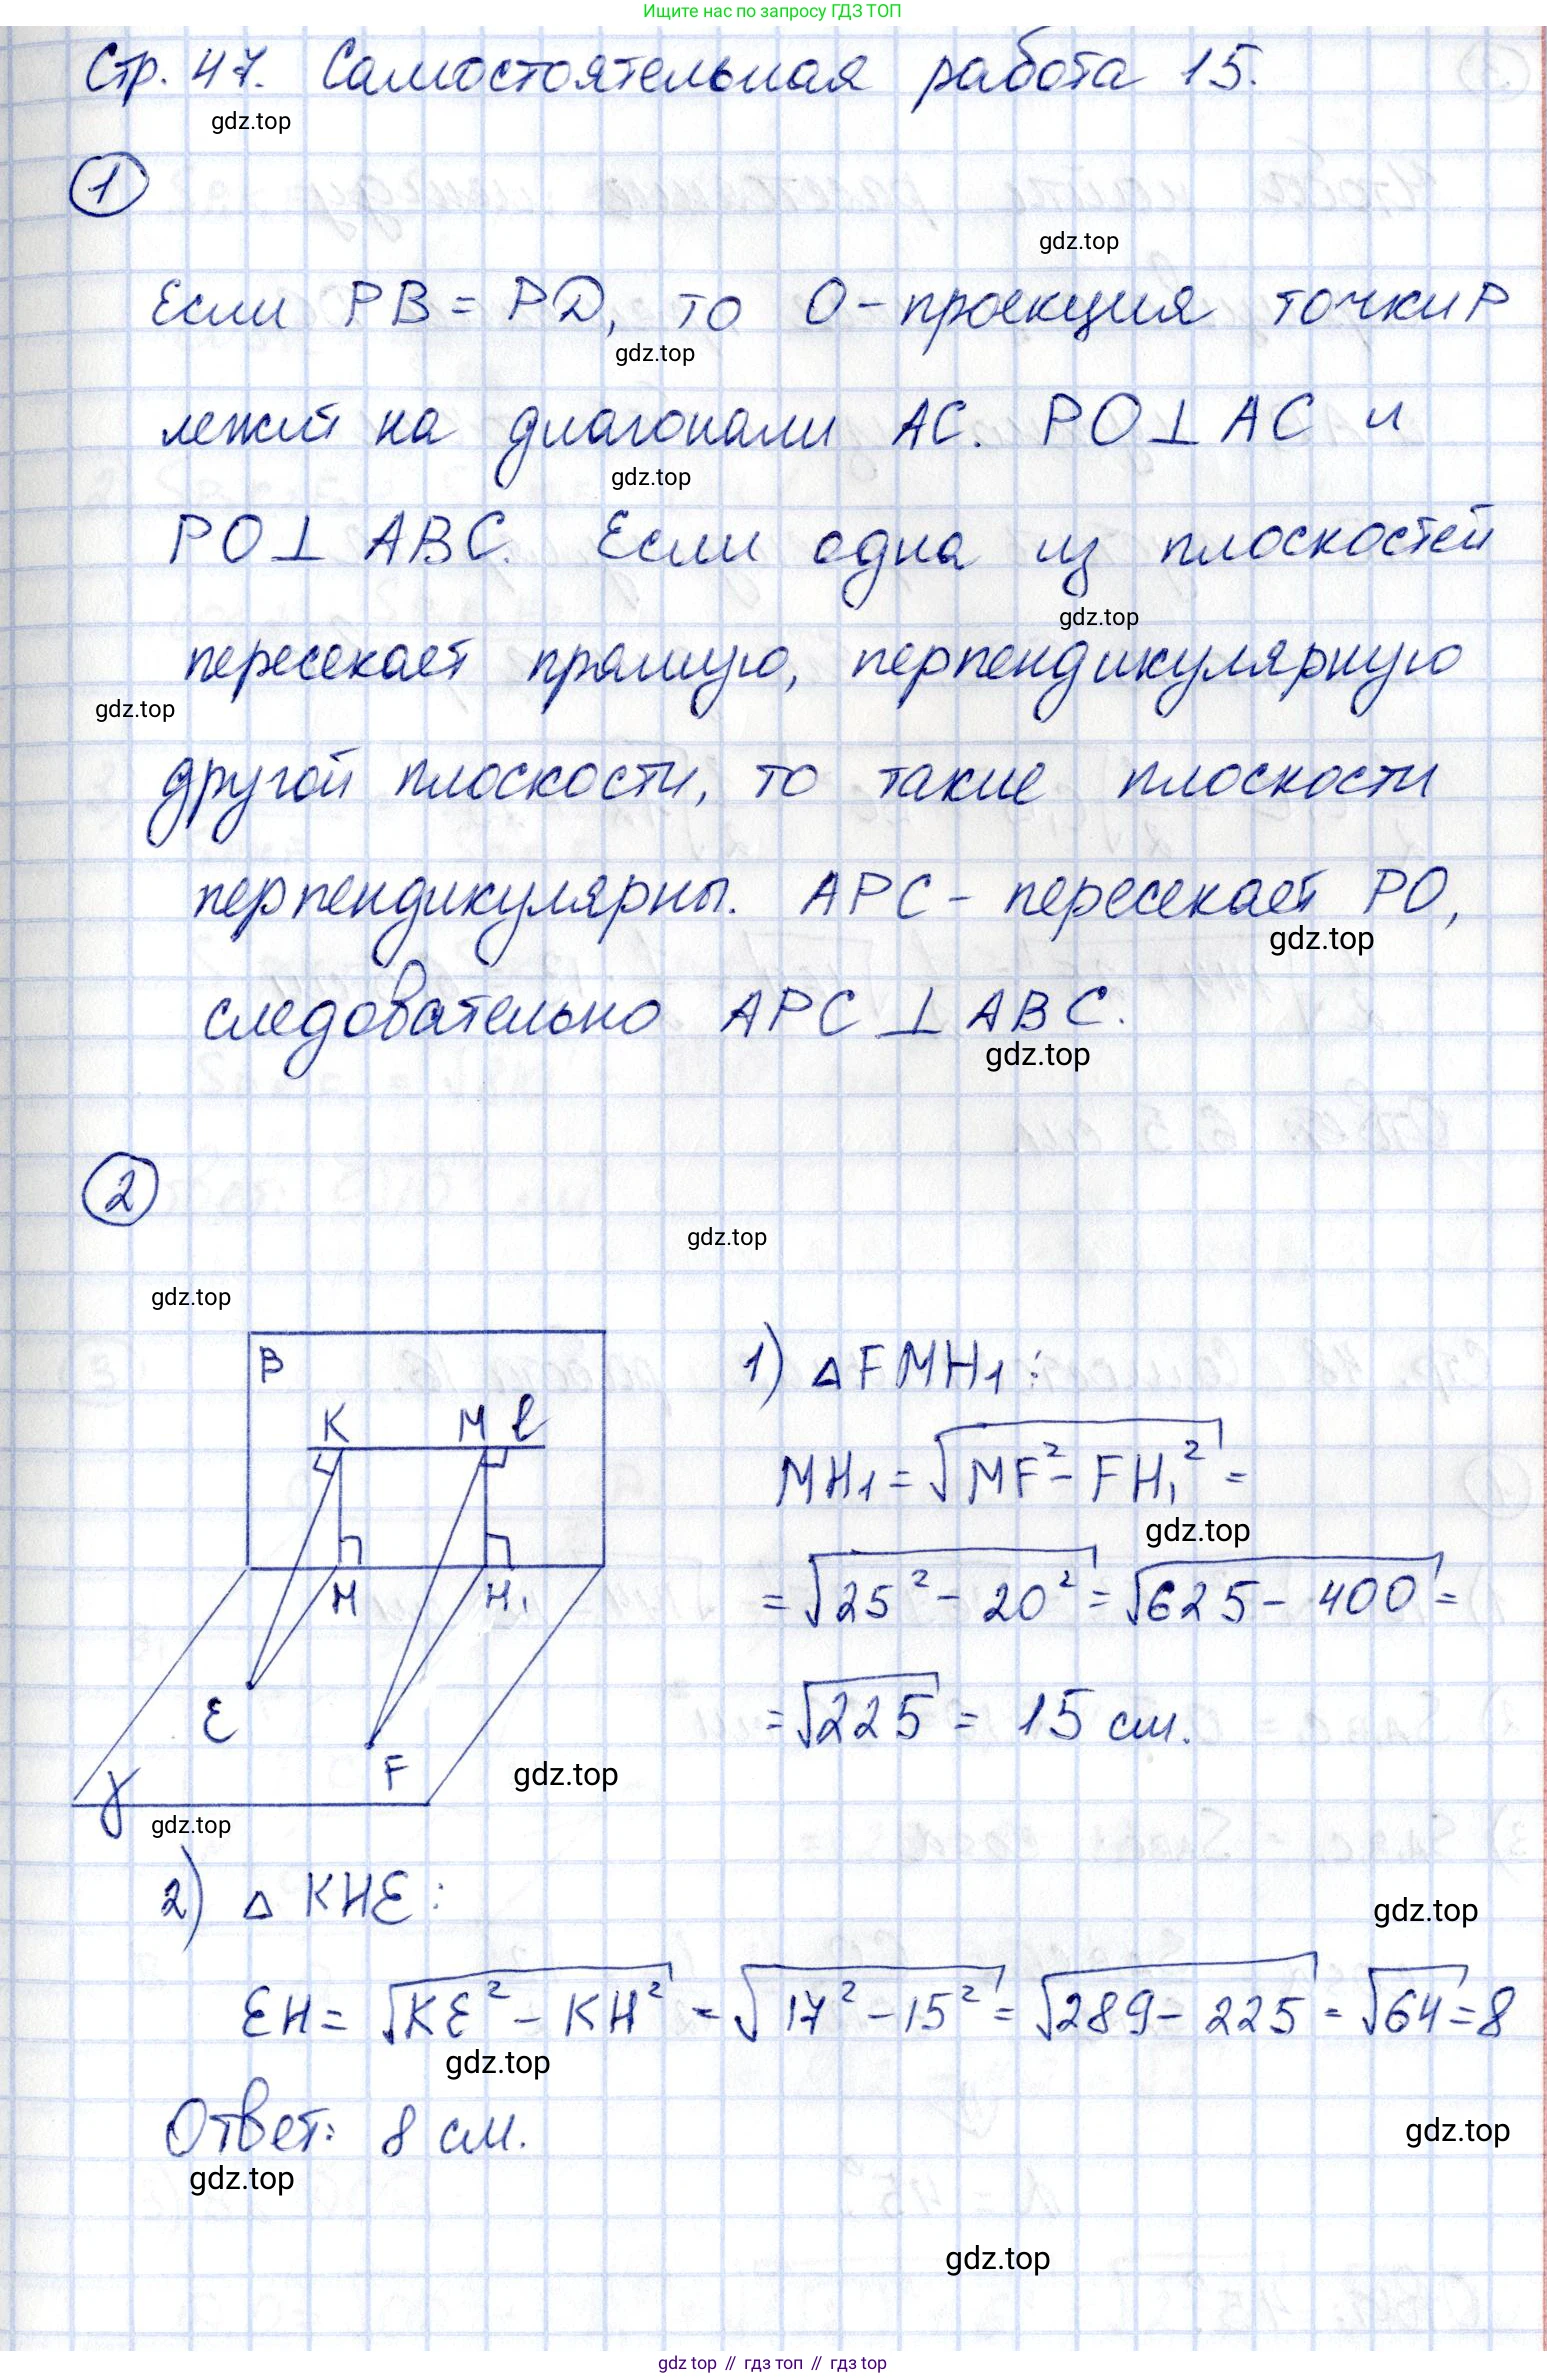 Ищите нас по запросу ГДЗ ТОП
Стр. 47. Самостоятельная работа 15.
gdz.top
1
gdz.top
Если PB = PD, то O - проекция точки P
gdz.top
лежит на диагонали AC. PO⊥AC и
gdz.top
PO⊥ ABC. Если одна из плоскостей
gdz.top
пересекает прямую, перпендикулярную
gdz.top
другой плоскости, то такие плоскости
перпендикулярны. APC - пересекает PO,
gdz.top
следовательно APC ⊥ ABC.
gdz.top
2
gdz.top
gdz.top
B
K M ℓ
H H₁
E
F
γ
gdz.top
gdz.top
1) △FMH₁:
MH₁ = √MF² - FH₁² =
gdz.top
= √25² - 20² = √625 - 400 =
= √225 = 15 см.
2) △ KHE:
gdz.top
EH = √KE² - KH² = √17² - 15² = √289 - 225 = √64 = 8
gdz.top
Ответ: 8 см.
gdz.top
gdz.top
gdz.top
gdz top // гдз топ // гдз top